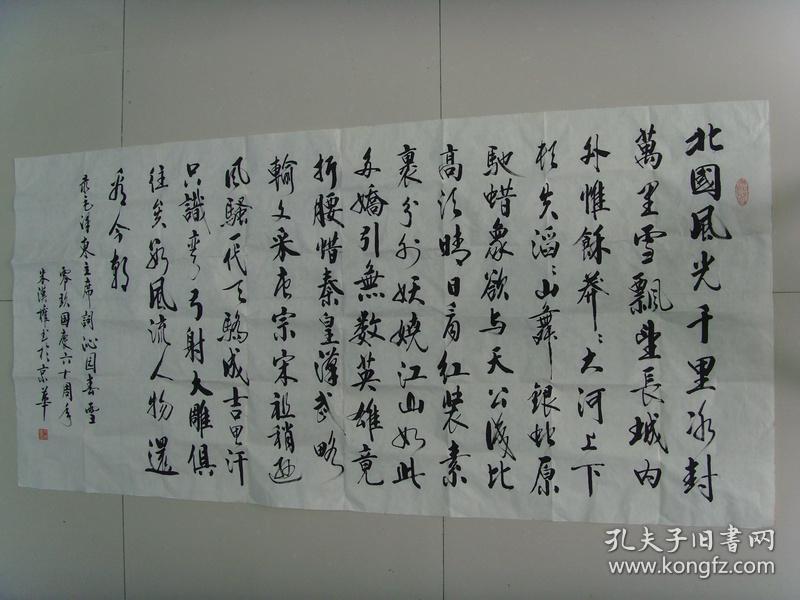 北國風光千里冰封
萬里雪飄望長城內
外惟餘莽〻大河上下
頓失滔〻山舞銀蛇原
馳蜡象欲与天公試比
高須晴日看紅装素
裹分外妖嬈江山如此
多嬌引無数英雄竟
折腰惜秦皇漢武略
輸文采唐宗宋祖稍遜
風騷一代天驕成吉思汗
只識彎弓射大雕俱
往矣數風流人物還
看今朝
录毛泽東主席詞沁园春雪
零玖国慶六十周年
朱漢權书於京華
孔夫子旧書网
www.kongfz.com